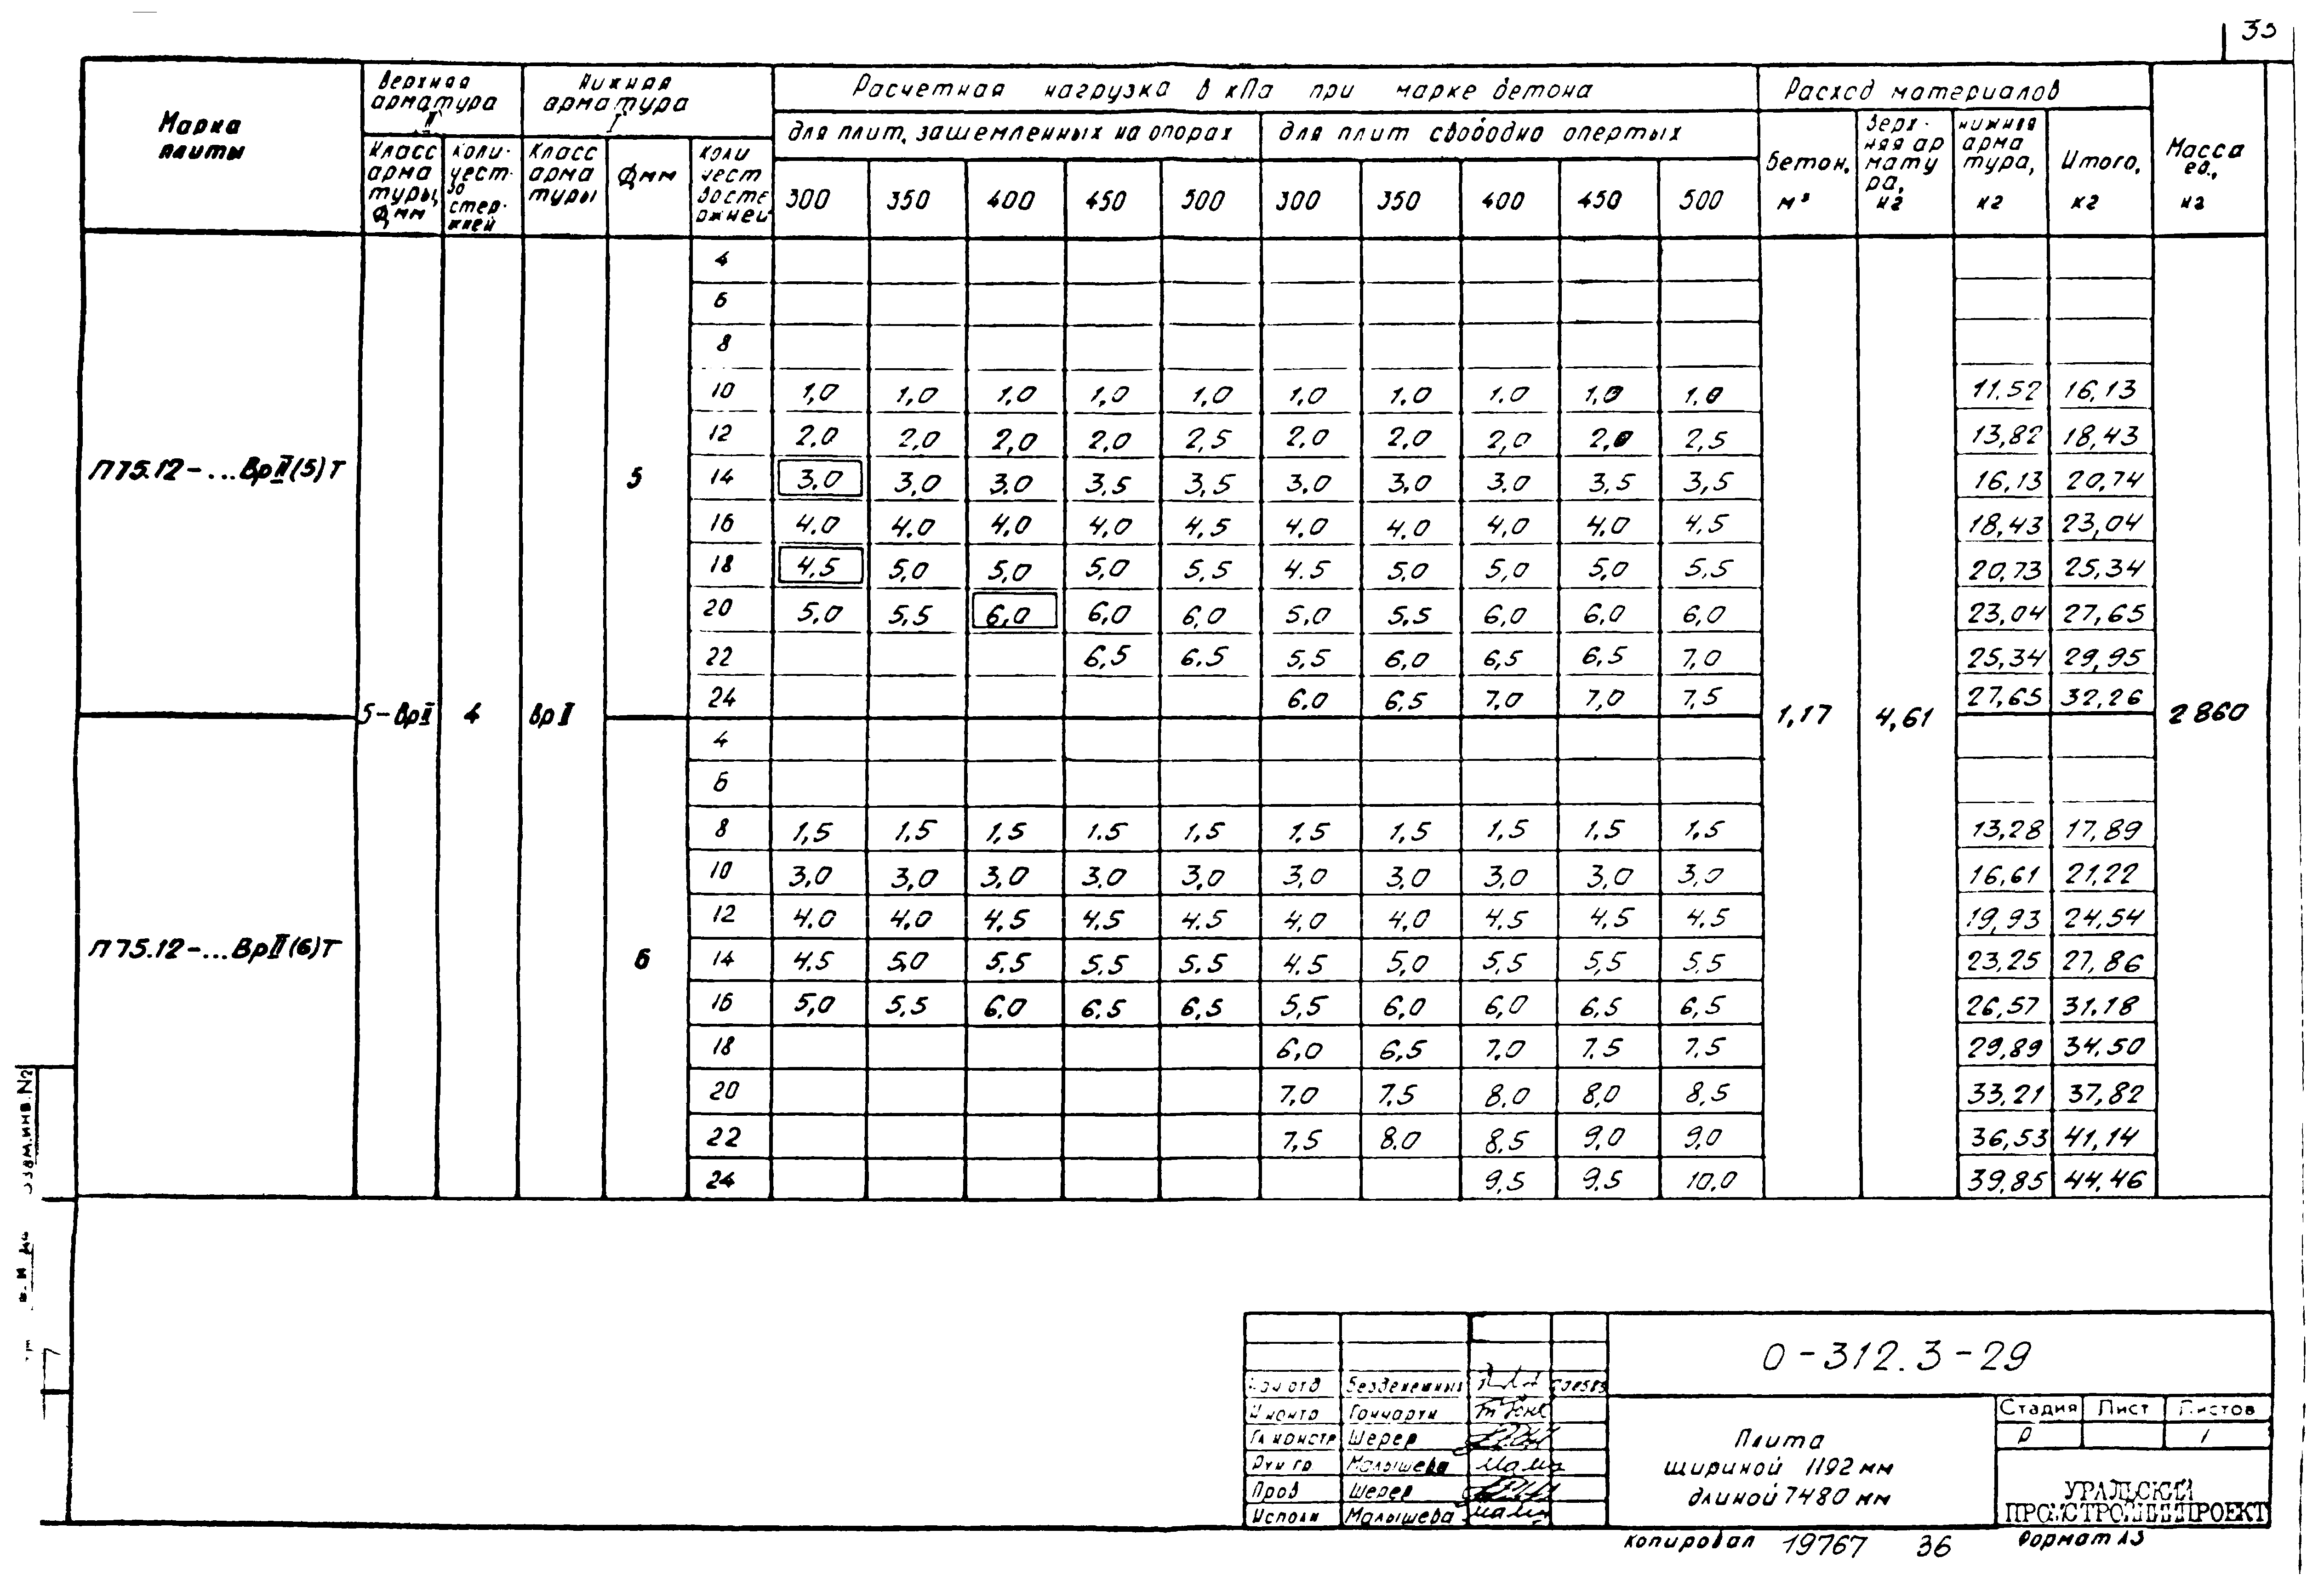 35
Марка плиты
Верхняя арматура II
Нижняя арматура I
Расчетная нагрузка в кПа при марке бетона
Расход материалов
Масса ед., кг
для плит, защемленных на опорах
для плит свободно опертых
Класс арматуры, Ф мм
Количество стержней
Класс арматуры
Ф мм
Количество стержней
300 350 400 450 500 300 350 400 450 500
Бетон, м³
Верхняя арматура, кг
Нижняя арматура, кг
Итого, кг
4
6
8
10 1,0 1,0 1,0 1,0 1,0 1,0 1,0 1,0 1,0 1,0 11,52 16,13
12 2,0 2,0 2,0 2,0 2,5 2,0 2,0 2,0 2,0 2,5 13,82 18,43
П75.12-...ВрII(5)Т 5 14 3,0 3,0 3,0 3,5 3,5 3,0 3,0 3,0 3,5 3,5 16,13 20,74
16 4,0 4,0 4,0 4,0 4,5 4,0 4,0 4,0 4,0 4,5 18,43 23,04
18 4,5 5,0 5,0 5,0 5,5 4,5 5,0 5,0 5,0 5,5 20,73 25,34
20 5,0 5,5 6,0 6,0 6,0 5,0 5,5 6,0 6,0 6,0 23,04 27,65
22 6,5 6,5 5,5 6,0 6,5 6,5 7,0 25,34 29,95
24 6,0 6,5 7,0 7,0 7,5 27,65 32,26
5-ВрII 4 ВрII 1,17 4,61 2860
4
6
8 1,5 1,5 1,5 1,5 1,5 1,5 1,5 1,5 1,5 1,5 13,28 17,89
10 3,0 3,0 3,0 3,0 3,0 3,0 3,0 3,0 3,0 3,0 16,61 21,22
12 4,0 4,0 4,5 4,5 4,5 4,0 4,0 4,5 4,5 4,5 19,93 24,54
П75.12-...ВрII(6)Т 6 14 4,5 5,0 5,5 5,5 5,5 4,5 5,0 5,5 5,5 5,5 23,25 27,86
16 5,0 5,5 6,0 6,5 6,5 5,5 6,0 6,0 6,5 6,5 26,57 31,18
18 6,0 6,5 7,0 7,5 7,5 29,89 34,50
20 7,0 7,5 8,0 8,0 8,5 33,21 37,82
22 7,5 8,0 8,5 9,0 9,0 36,53 41,14
24 9,5 9,5 10,0 39,85 44,46
Взам.инв.N2
0-312.3-29
Нач отд Безденежных
Н контр Гончарук
Гл констр Шерер
Рук гр Малышева
Пров Шерер
Исполн Малышева
Плита
шириной 1192 мм
длиной 7480 мм
Стадия Лист Листов
Р 1
УРАЛЬСКИЙ
ПРОМСТРОЙНИИПРОЕКТ
Копировал 19767 36 Формат А3